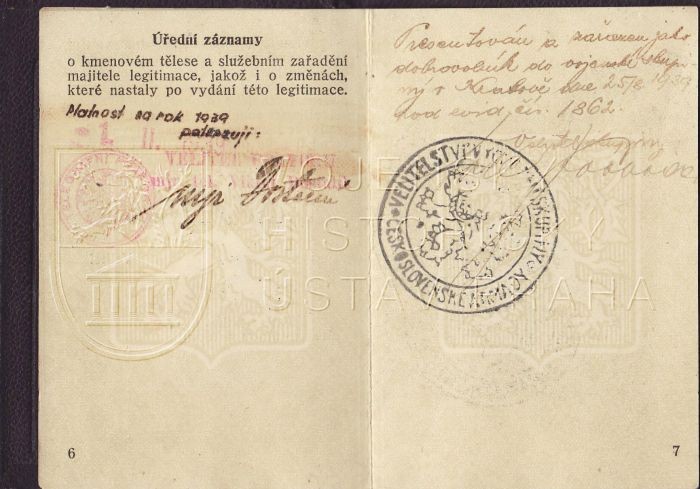 Úřední záznamy
o kmenovém tělese a služebním zařadění
majitele legitimace, jakož i o změnách,
které nastaly po vydání této legitimace.
Platnost na rok 1939
potvrzuji:
mjr.
6
Presentován a zařazen jako
dobrovolník do vojenské skupi-
ny v Krakově dne 25/8 1939
pod evid. čís. 1862.
VELITELSTVÍ SKUPINY
ČESKOSLOVENSKÉ ARMÁDY
VOJENSKÝ
HISTORICKÝ
ÚSTAV PRAHA
7